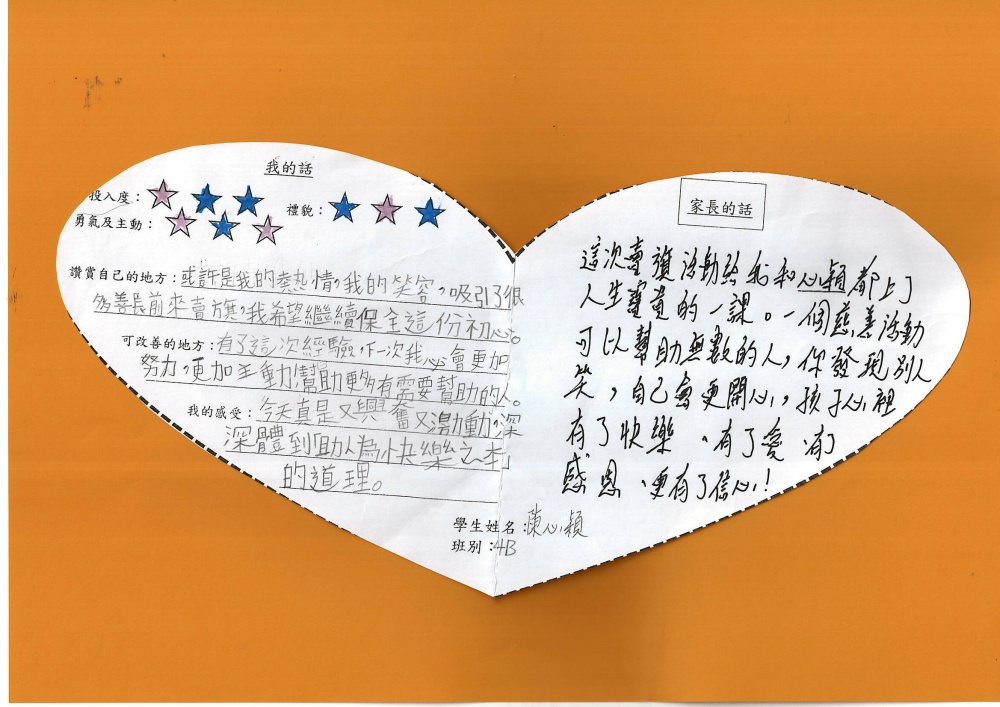 我的話
投入度：
禮貌：
勇氣及主動：
讚賞自己的地方：或許是我的熱情，我的笑容，吸引了很
多善長前來賣旗。我希望繼續保全這份初心。
可改善的地方：有了這次經驗，下一次我必會更加
努力，更加主動幫助更多有需要幫助的人。
我的感受：今天真是又興奮又激動，深
深體到「助人為快樂之本」
的道理。
家長的話
這次賣旗活動給我和心穎都上了
人生寶貴的一課。一個慈善活動
可以幫助無數的人，你發現別人
笑，自己會更開心，孩子心裡
有了快樂、有了愛、有了
感恩、更有了信心！
學生姓名：陳心穎
班別：4B